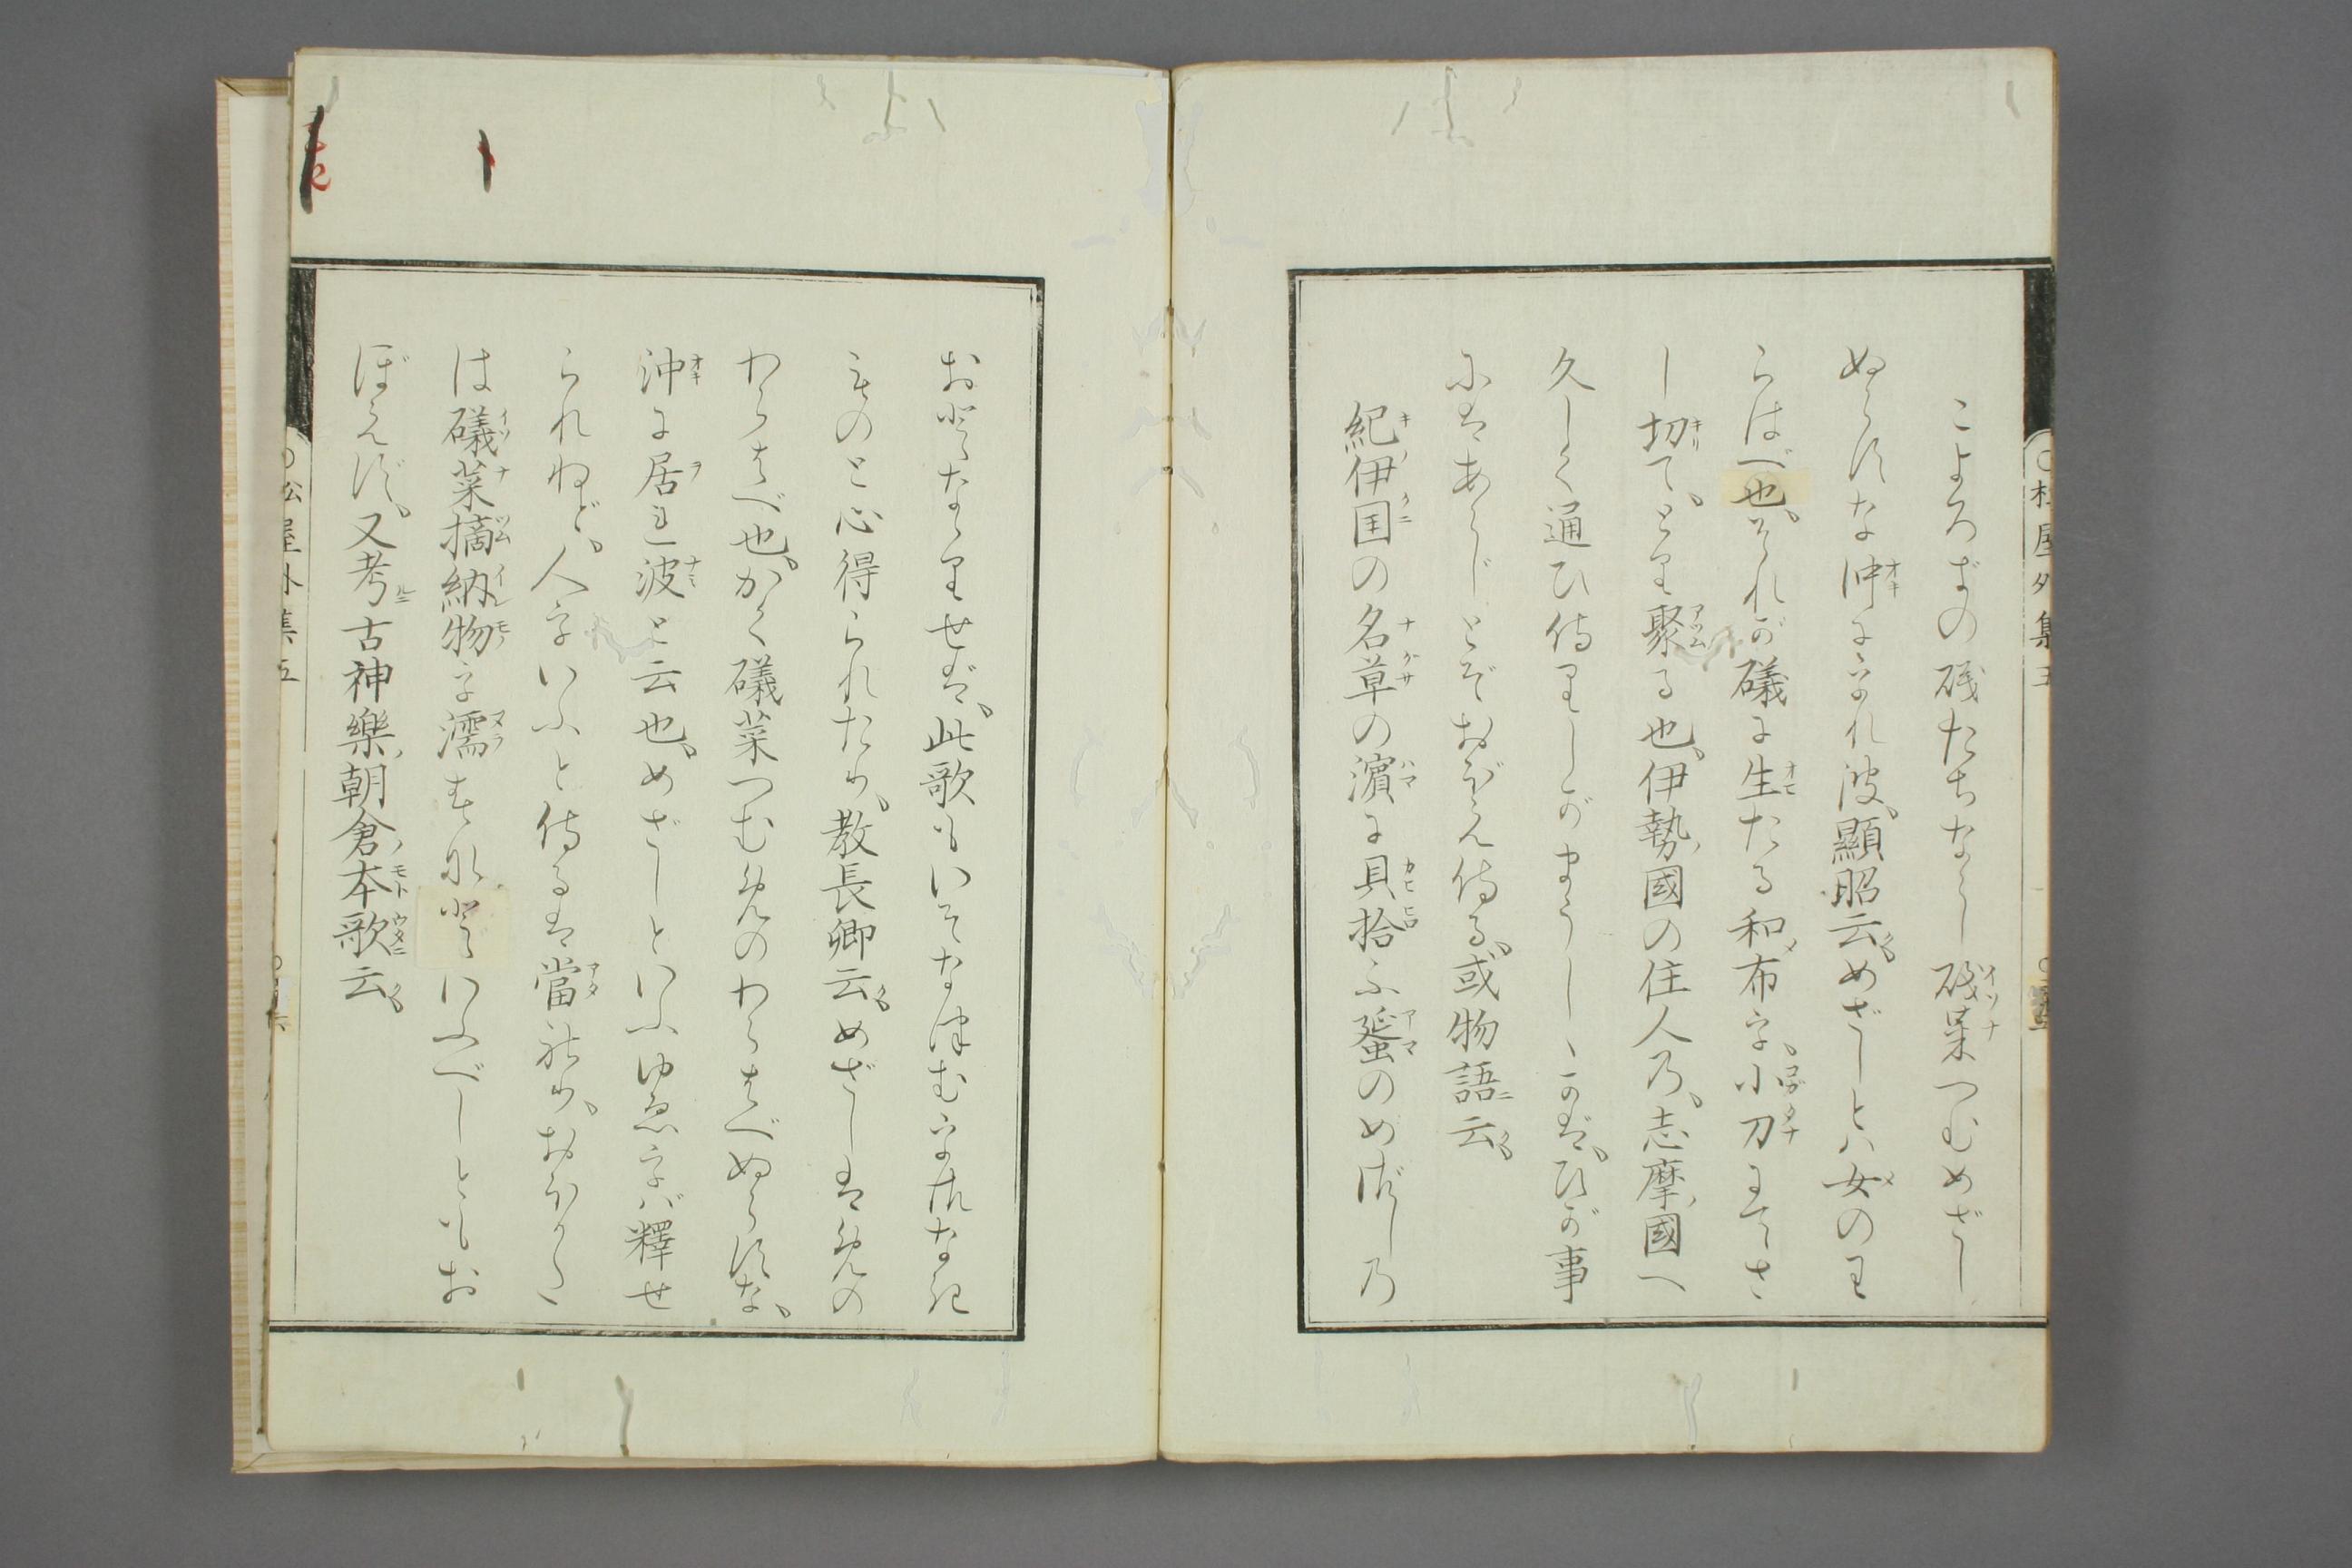 こよろぎの磯たちならし磯菜つむめざし
ぬらすな沖にをれ波、顯昭云、めざしとハ女のわ
らはべ也、それが礒に生たる和布を、小刀にてさ
し切て、とり聚る也、伊勢ノ國の住人乃、志摩ノ國へ
久しく通ひ侍りしがまうししかば、ひが事
にはあらじとぞおぼえ侍る、或物語ニ云、
紀ノ伊国の名草の濱に貝拾ふ蜑のめざし乃
おとななりせば、此歌もいそなつむをさなき
ものと心得られたり、教長卿云、めざしはあまの
わらはべ也、かく礒菜つむあまのわらはべぬらすな、
沖に居れ波と云也、めざしといふゆゑをバ釋せ
られねど、人をいふと侍るは當れり、おほかた
は礒菜摘納物を濡すなといふべしともお
ぼえず、又考ルニ古神樂ノ朝倉ノ本歌ニ云、
松屋外集五